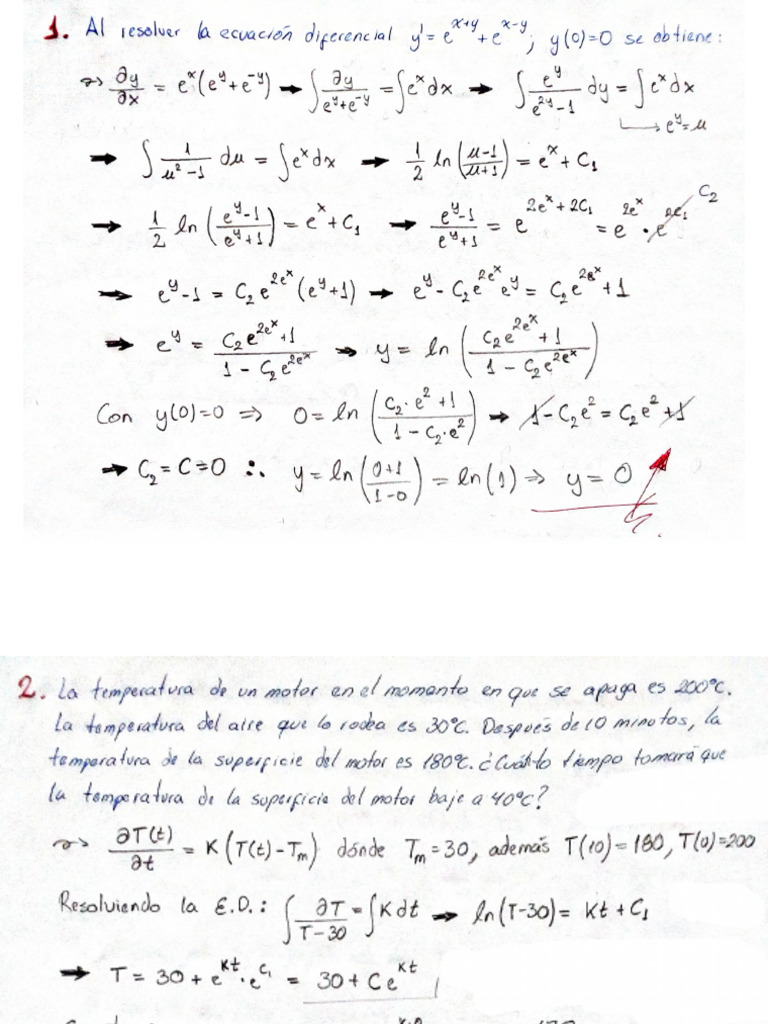 1. Al resolver la ecuación diferencial y' = e^{x+y} + e^{x-y}; y(0)=0 se obtiene:
∂y/∂x = e^x(e^y + e^{-y}) → ∫ ∂y/(e^y + e^{-y}) = ∫e^x dx → ∫ e^y/(e^{2y} - 1) dy = ∫e^x dx
→ e^y = u
→ ∫ 1/(u² - 1) du = ∫e^x dx → 1/2 ln((u-1)/(u+1)) = e^x + C₁
→ 1/2 ln((e^y - 1)/(e^y + 1)) = e^x + C₁ → (e^y - 1)/(e^y + 1) = e^{2e^x + 2C₁} = e^{2e^x} · e^{2C₁} C₂
→ e^y - 1 = C₂e^{2e^x}(e^y + 1) → e^y - C₂e^{2e^x}e^y = C₂e^{2e^x} + 1
→ e^y = (C₂e^{2e^x} + 1)/(1 - C₂e^{2e^x}) → y = ln((C₂e^{2e^x} + 1)/(1 - C₂e^{2e^x}))
Con y(0)=0 ⇒ 0 = ln((C₂·e² + 1)/(1 - C₂·e²)) → 1 - C₂e² = C₂e² + 1
→ C₂ = C = 0 ∴ y = ln((0+1)/(1-0)) = ln(1) ⇒ y = 0
2. La temperatura de un motor en el momento en que se apaga es 200°C.
La temperatura del aire que lo rodea es 30°C. Después de 10 minutos, la
temperatura de la superficie del motor es 180°C. ¿Cuánto tiempo tomará que
la temperatura de la superficie del motor baje a 40°C?
∂T(t)/∂t = K(T(t) - Tₘ) dónde Tₘ = 30, además T(10) = 180, T(0) = 200
Resolviendo la E.D.: ∫ ∂T/(T - 30) = ∫K dt → ln(T-30) = Kt + C₁
→ T = 30 + e^{Kt}·e^{C₁} = 30 + Ce^{Kt}